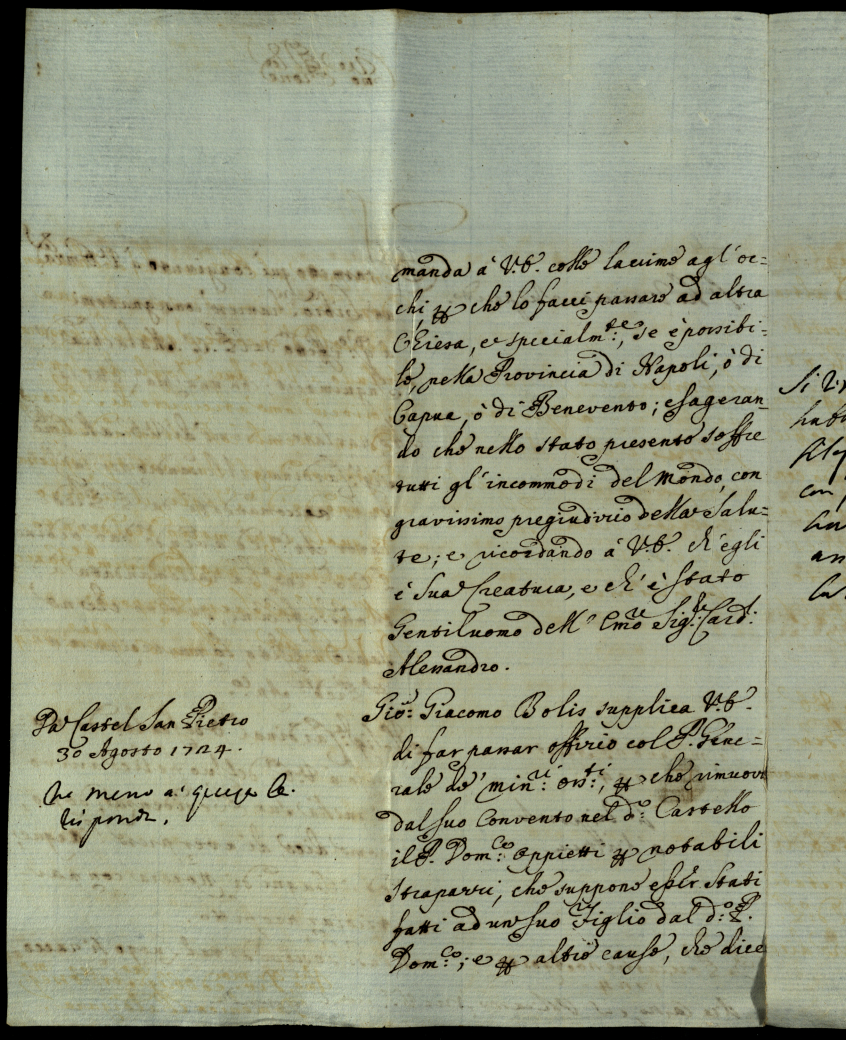 manda à V.B. colle lacrime agl'oc=
chi, che lo facci passare ad altra
Chiesa, e specialm.te, se è possibi=
le, nella Provincia di Napoli, ò di
Capua, ò di Benevento; esageran=
do che nello stato presente soffre
tutti gl'incommodi del Mondo, con
gravissimo pregiudizio della Salu=
te; e ricordando à V.B. ch'egli
è Sua Creatura, e ch'è stato
Gentiluomo dell' Emo Sig.r Card.l
Alessandro.
Da Castel San Pietro
30 Agosto 1724.
Ne meno a questa
risponde.
Gio: Giacomo Bolis supplica V.B.
di far passar offizio col P. Gene=
rale de' Min.ri Oss.ti, che rimuova
dal suo Convento nel d.o Castello
il P. Dom.co Oppietti notabili
strapazzi, che suppone esser stati
fatti ad un suo Figlio dal d.o P.
Dom.co; e altre cause, che dice